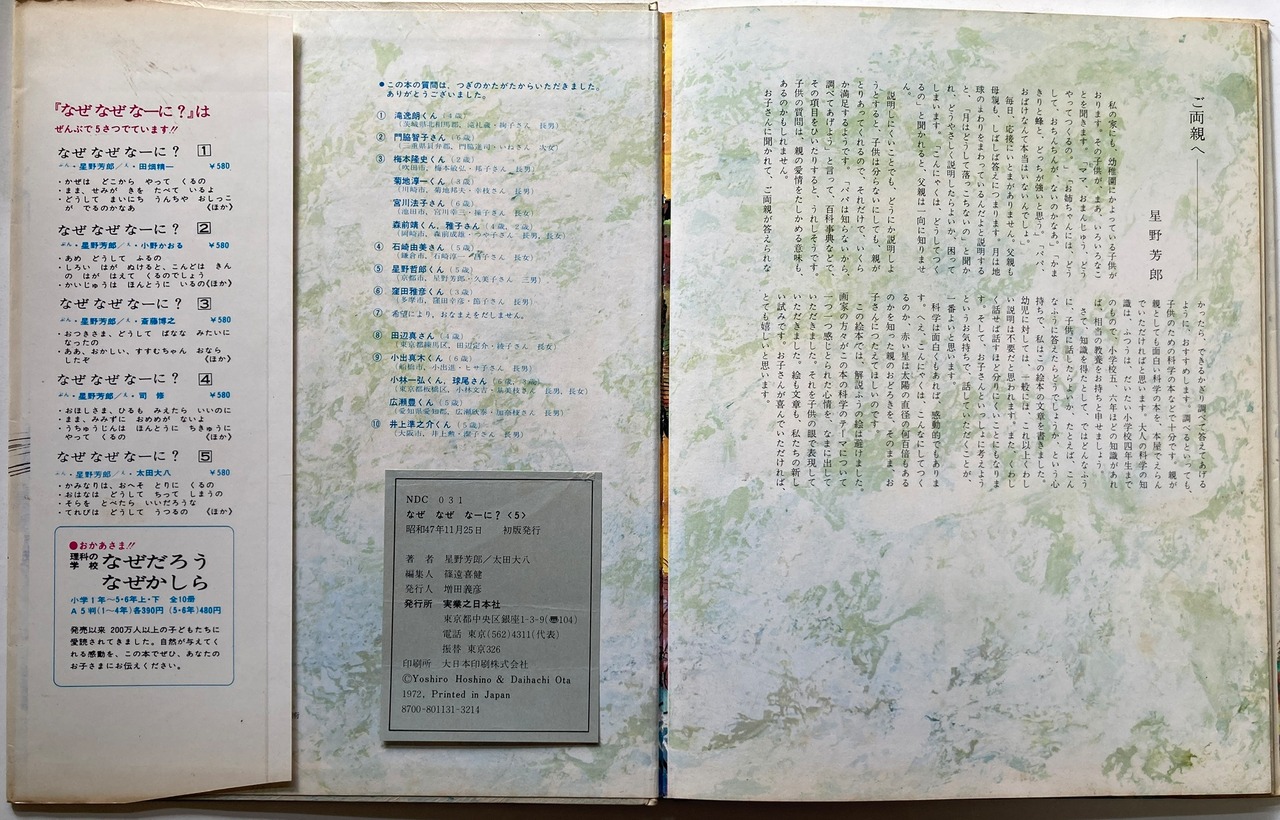 『なぜ なぜ なーに?』は
ぜんぶで 5さつでています!!
なぜ なぜ なーに? 1
ぶん・星野芳郎/え・田畑精一 ¥580
・かぜは どこから やって くるの
・まま、せみが きを たべて いるよ
・どうして まいにち うんちや おしっこ
が でるのかなあ 《ほか》
なぜ なぜ なーに? 2
ぶん・星野芳郎/え・小野かおる ¥580
・あめ どうして ふるの
・しろい はが ぬけると、こんどは きん
の はが はえて くるのでしょう
・かいじゅうは ほんとうに いるの《ほか》
なぜ なぜ なーに? 3
ぶん・星野芳郎/え・斎藤博之 ¥580
・おつきさま、どうして ばなな みたいに
なったの
・ああ、おかしい、すすむちゃん おなら
したぞ 《ほか》
なぜ なぜ なーに? 4
ぶん・星野芳郎/え・司 修 ¥580
・おほしさま、ひるも みえたら いいのに
・まま、みみずに おめめが ないよ
・うちゅうじんは ほんとうに ちきゅうに
やって くるの 《ほか》
なぜ なぜ なーに? 5
ぶん・星野芳郎/え・太田大八 ¥580
・かみなりは、おへそ とりに くるの
・おはなは どうして ちって しまうの
・そらを とべたら いいだろうな
・てれびは どうして うつるの 《ほか》
●おかあさま!!
理科の学校 なぜだろう
なぜかしら
小学1年〜5・6年上・下 全10冊
A5判(1〜4年)各390円 (5・6年)480円
発売以来 200万人以上の子どもたちに
愛読されてきました。自然が与えてく
れる感動を、この本でぜひ、あなたの
お子さまにお伝えください。
●この本の質問は、つぎのかたがたからいただきました。
ありがとうございました。
① 滝逸朗くん(4歳)
(茨城県北相馬郡、滝礼蔵・絢子さん 長男)
② 門脇智子さん(6歳)
③ 梅本隆史くん(2歳)
(吹田市、梅本敏弘・邦子さん 長男)
菊地淳一くん(3歳)
(川崎市、菊地邦夫・幸枝さん 長男)
宮川法子さん(6歳)
(池田市、宮川幸三・操子さん 長女)
森前靖くん、雅子さん(4歳、2歳)
(岡崎市、森前成雄・つや子さん 長男、長女)
④ 石崎由美さん(5歳)
⑤ 星野哲郎くん(5歳)
(京都市、星野芳郎・久美子さん 三男)
⑥ 窪田雅彦くん(3歳)
(多摩市、窪田幸彦・節子さん 長男)
⑦ 希望により、おなまえをだしません。
⑧ 田辺真さん(4歳)
(東京都練馬区、田辺定介・綾子さん 長男)
⑨ 小出真木くん(6歳)
(船橋市、小出進・ヒサ子さん 長男)
小林一弘くん、球尾さん
広瀬豊くん(5歳)
(愛知県愛知郡、広瀬欣泰・加奈枝さん 長男)
⑩ 井上準之介くん(5歳)
(大阪市、井上勲・潔子さん 長男)
NDC 031
なぜ なぜ なーに?〈5〉
昭和47年11月25日 初版発行
著 者 星野芳郎/太田大八
編集人 篠遠喜健
発行人 増田義彦
発行所 実業之日本社
東京都中央区銀座1-3-9(〒104)
電話 東京(562)4311(代表)
振替 東京326
印刷所 大日本印刷株式会社
©Yoshiro Hoshino & Daihachi Ota
1972, Printed in Japan
8700-801131-3214
ご両親へ
星野芳郎
私の家にも、幼稚園にかよっている子供が
おります。その子供が、まあ、いろいろなこ
とを聞きます。「ママ、おまんじゅう、どう
やってつくるの。」「お姉ちゃんには、どう
して、おちんちんが、ないのかなあ。」「かま
きりと蜂と、どっちが強いと思う。」「パパ、
おばけなんて本当はいないんでしょ。」
毎日、応接にいとまがありません。父親も
母親も、しばしば答えにつまります。月は地
球のまわりをまわっているんだよと説明する
と、「月はどうして落っこちないの」と聞か
れ、どうやさしく説明したらよいか、困って
しまいます。「こんにゃくは、どうしてつく
るの」と聞かれると、父親は一向に知りませ
ん。
説明しにくいことでも、どうにか説明しよ
うとすると、子供は分らないにしても、親が
とりあってくれるので、それだけで、いくら
か満足するようです。「パパは知らないから、
調べてあげよう」と言って、百科事典などで、
その項目をひいたりすると、うれしそうです。
子供の質問は、親の愛情をたしかめる意味も、
あるのかもしれません。
お子さんに聞かれて、ご両親が答えられな
かったら、できるかぎり調べて答えてあげる
ように、おすすめします。調べるといっても、
子供のための科学の本などで十分です。親が
親としても面白い科学の本を、本屋でえらん
でいただければと思います。大人の科学の知
識は、ふつうは、だいたい小学校四年生まで
のもので、小学校五、六年ほどの知識があれ
ば、相当の教養をお持ちと申せましょう。
さて、知識を得たとして、ではどんなふう
に、子供に話したらよいか、たとえば、こん
なふうに答えたらどうでしょうか、という心
持ちで、私はこの絵本の文章を書きました。
幼児に対しては、一般には、これ以上くわし
い説明は不要だと思われます。また、くわし
く話せば話すほど分りにくいことにもなりま
す。そして、お子さんといっしょに考えよう
というお気持ちで、話していただくことが、
一番よいと思います。
科学は面白くもあれば、感動的でもありま
す。へえ、こんにゃくは、こんなにしてつく
るのか、赤い星は太陽の直径の何百倍もある
のかを知った親のおどろきを、そのまま、お
子さんにつたえてほしいのです。
この絵本では、解説ふうの絵は避けました。
画家の方々がこの本の科学のテーマについて
一つ一つ感じとられた心情を、なまに出して
いただきました。それを子供の眼で表現して
いただきました。絵も文章も、私たちの新し
い試みです。お子さんが喜んでいただければ、
とても嬉しいと思います。